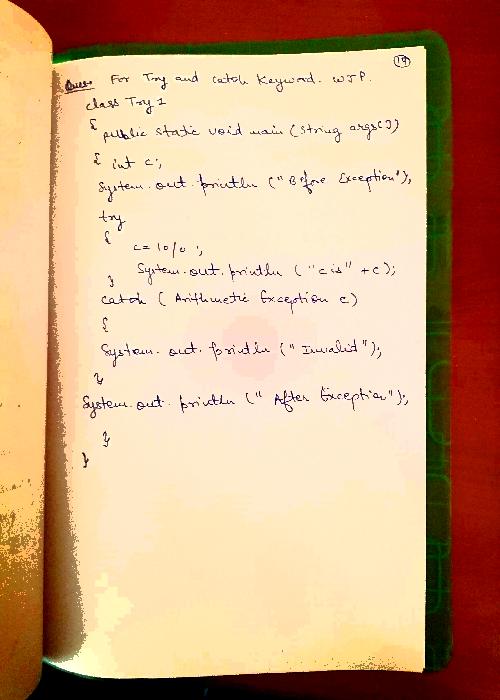 19
Ques. For Try and catch Keyword. WJP.
class Try 1
{ public static void main (String args[])
{ int c;
System.out.println ("Before Exception");
try
{
c = 10/0 ;
System.out.println ("c is" + c);
}
catch ( Arithmetic Exception c)
{
System.out.println (" Invalid");
}
System.out.println (" After Exception");
}
}